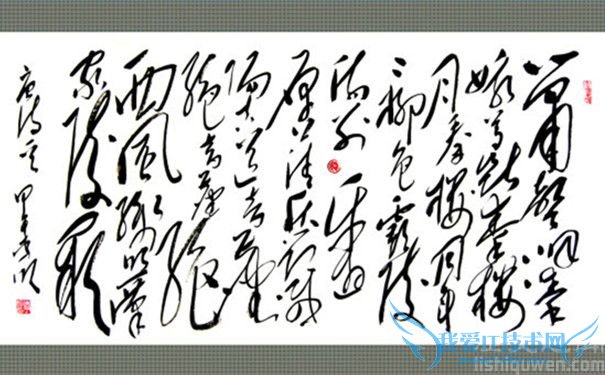 箫聲咽秦
娥梦断秦楼
月秦楼月年
々柳色霸陵
伤别 乐游
原上清秋节咸
阳古道音尘
绝音尘绝
西风残照汉
家陵阙
我爱IT技术网
lishiquwen.com